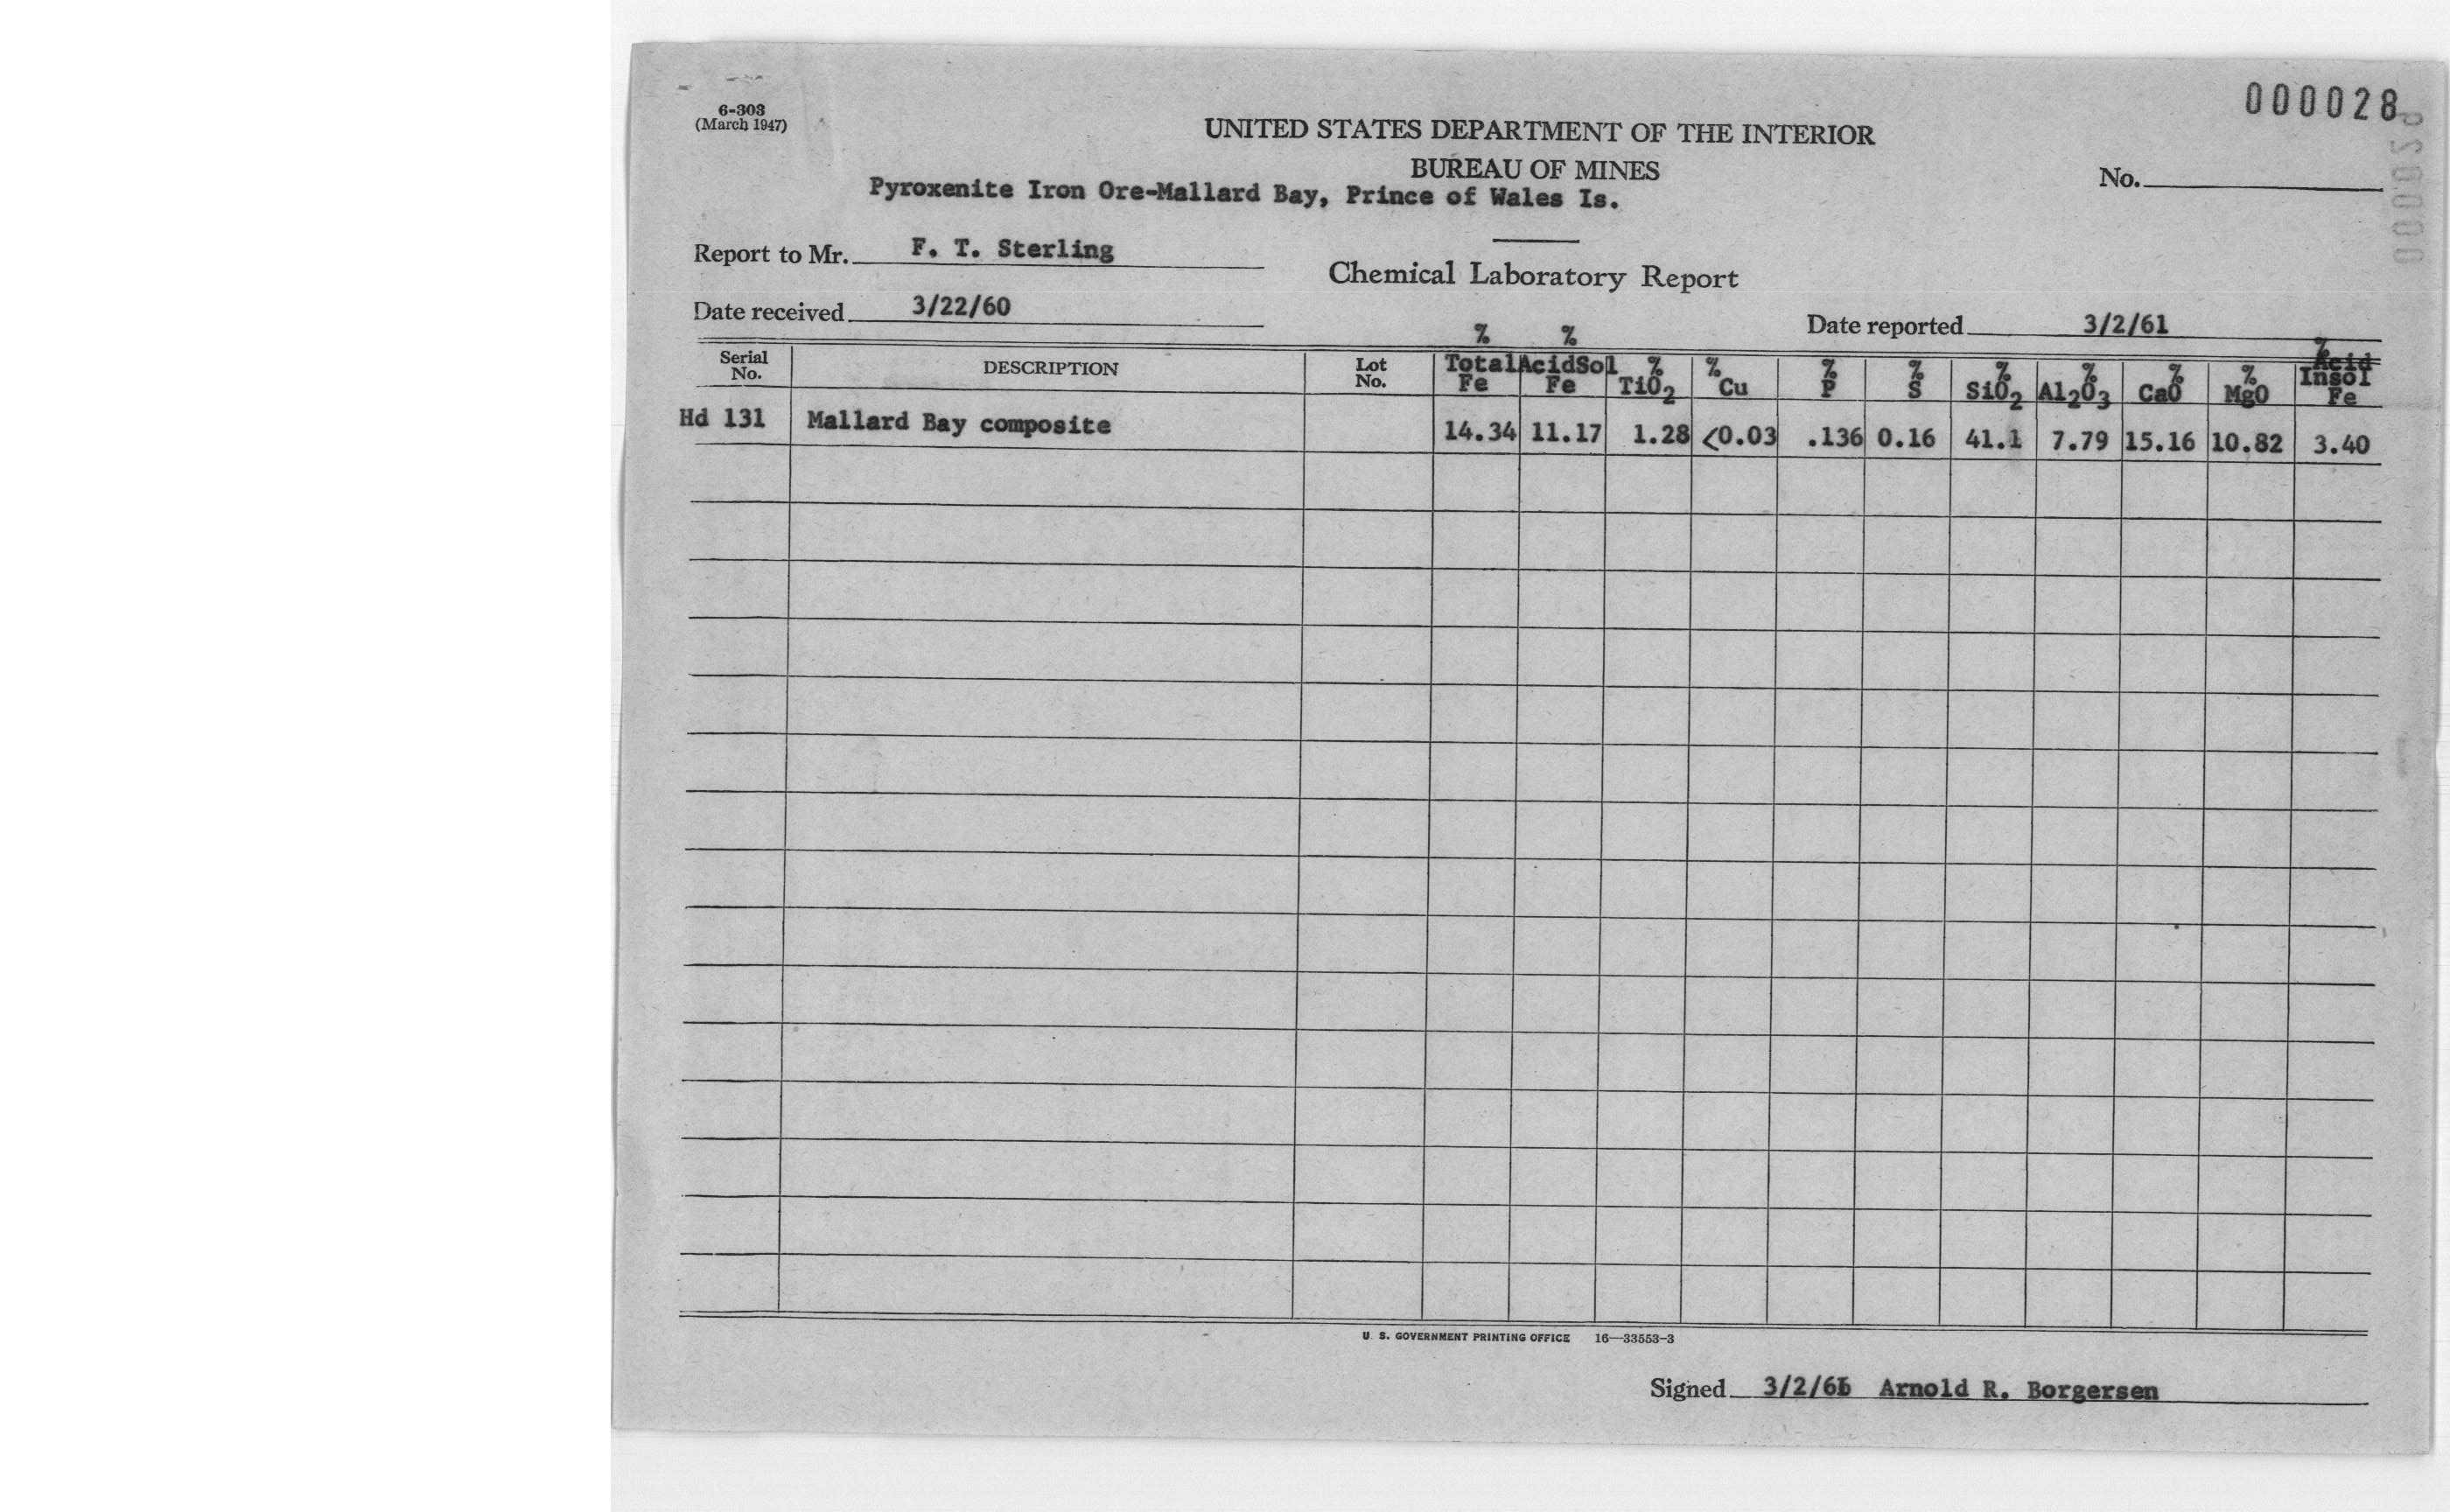 6-303
(March 1947)
000028
UNITED STATES DEPARTMENT OF THE INTERIOR
BUREAU OF MINES
No.
Pyroxenite Iron Ore-Mallard Bay, Prince of Wales Is.
Report to Mr. F. T. Sterling
Chemical Laboratory Report
Date received 3/22/60
Date reported 3/2/61
Serial No. DESCRIPTION Lot No. % Total Fe % AcidSol Fe % TiO2 % Cu % P % S % SiO2 % Al2O3 % CaO % MgO % Acid Insol Fe
Hd 131 Mallard Bay composite 14.34 11.17 1.28 <0.03 .136 0.16 41.1 7.79 15.16 10.82 3.40
U. S. GOVERNMENT PRINTING OFFICE 16—33553-3
Signed 3/2/61 Arnold R. Borgersen